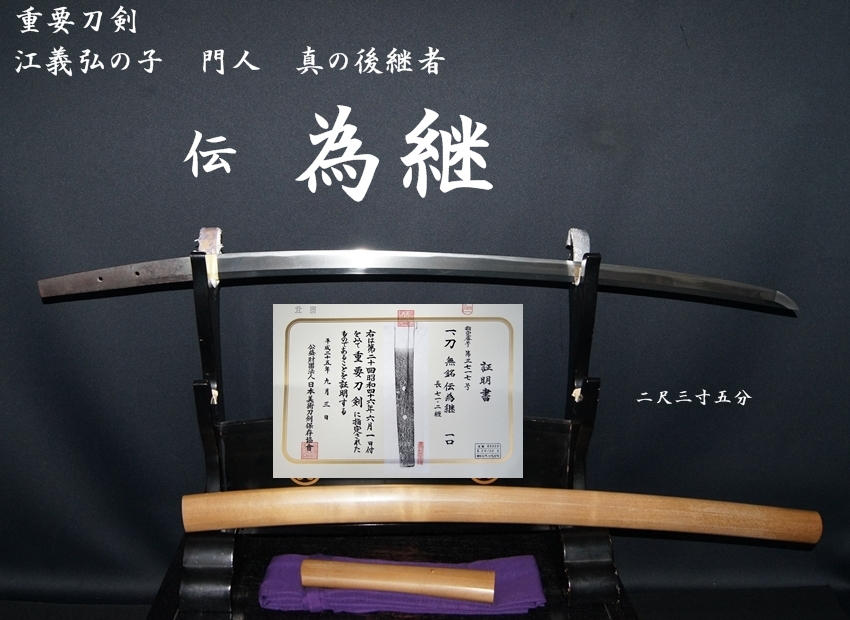 重要刀剣
江義弘の子 門人 真の後継者
伝 為継
二尺三寸五分
証明書
一、刀 無銘 伝為継 一口
長 七一・二糎
右は第二十回昭和四十六年六月一日付
を以て重要刀剣に指定された
ものであることを証明する
平成二十五年九月三日
公益財団法人日本美術刀剣保存協會